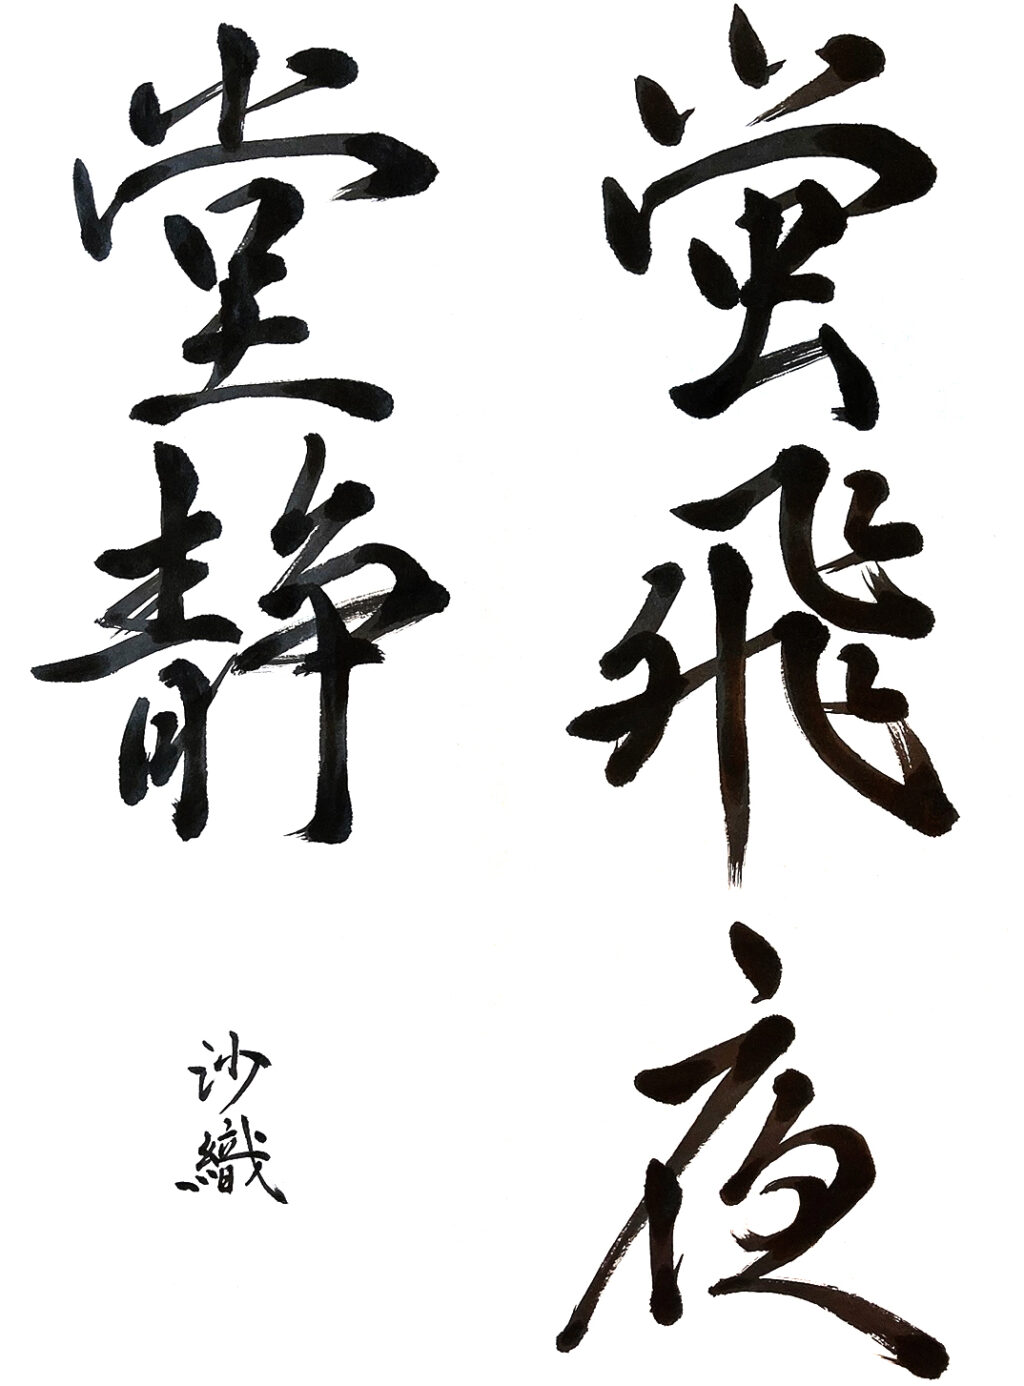 蛍飛夜
堂静
沙織